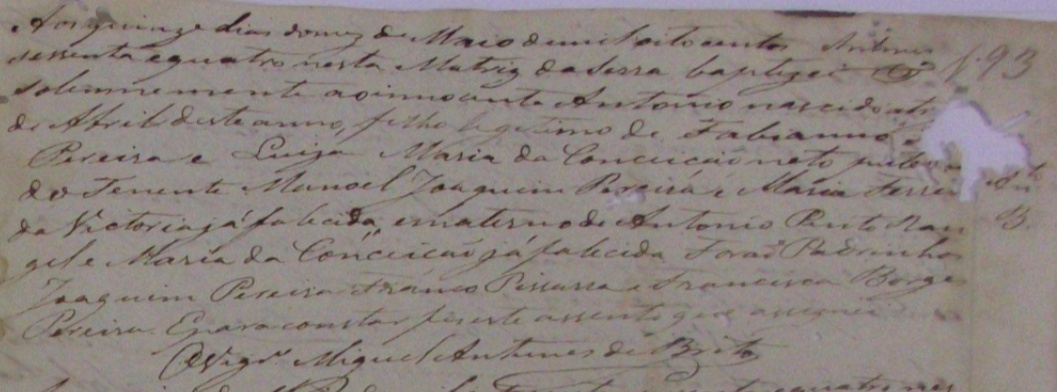 Aos quinze dias do mez de Maio de mil oito centos
sessenta e quatro nesta Matriz da Serra baptizei
solemnemente ao innocente Antonio nascido
de Abril deste anno, filho legitimo de Fabianno
Pereira e Luiza Maria da Conceição neto
do Tenente Manoel Joaquim Pereira e Maria
da Victoria já falecida, e materno de Antonio Pinto Ran
gel e Maria da Conceição já falecida Forão Padrinhos
Joaquim Pereira Franco Pissarra e Francisca Borges
Pereira. E para constar fiz este assento que assignei
O Vigr.o Miguel Antunes de Brito
f. 93